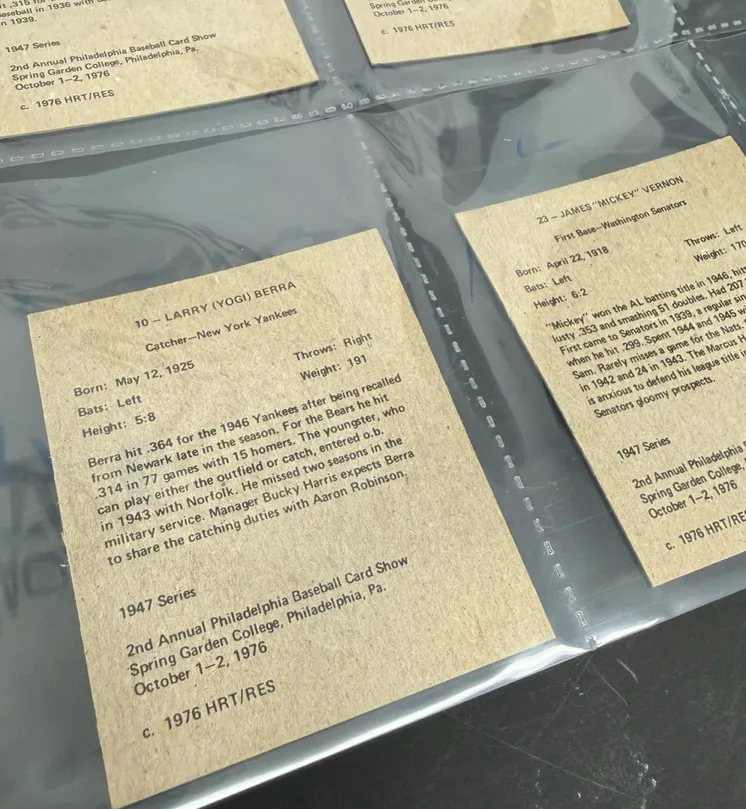 it .315 for
baseball in 1936 with
in 1939.
1947 Series
2nd Annual Philadelphia Baseball Card Show
Spring Garden College, Philadelphia, Pa.
October 1–2, 1976
c. 1976 HRT/RES
Spring Garden
October 1–2, 1976
c. 1976 HRT/RES
10 – LARRY (YOGI) BERRA
Catcher–New York Yankees
Born: May 12, 1925 Throws: Right
Bats: Left Weight: 191
Height: 5:8
Berra hit .364 for the 1946 Yankees after being recalled
from Newark late in the season. For the Bears he hit
.314 in 77 games with 15 homers. The youngster, who
can play either the outfield or catch, entered o.b.
in 1943 with Norfolk. He missed two seasons in the
military service. Manager Bucky Harris expects Berra
to share the catching duties with Aaron Robinson.
1947 Series
2nd Annual Philadelphia Baseball Card Show
Spring Garden College, Philadelphia, Pa.
October 1–2, 1976
c. 1976 HRT/RES
23 – JAMES "MICKEY" VERNON
First Base–Washington Senators
Born: April 22, 1918 Throws: Left
Bats: Left Weight: 170
Height: 6:2
"Mickey" won the AL batting title in 1946, hit
lusty .353 and smashing 51 doubles. Had 207
First came to Senators in 1939, a regular sin
when he hit .299. Spent 1944 and 1945 w
Sam. Rarely misses a game for the Nats.
in 1942 and 24 in 1943. The Marcus H
is anxious to defend his league title
Senators gloomy prospects.
1947 Series
2nd Annual Philadelphia
Spring Garden College,
October 1–2, 1976
c. 1976 HRT/RES